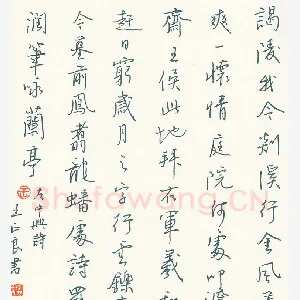 謁陵我今剡溪行金風
爽一懷情庭院何處叩
齋王侯此地拜右軍羲和
趕日窮歲月之字行雲鑠
今墓前鳳翥龍蟠處詩
潤筆咏蘭亭
中興詩
良書
Shufawang.CN